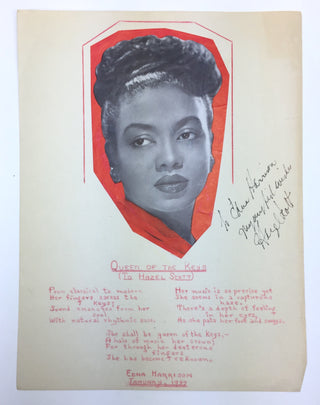 To Edna Harrison
Many good wishes
Hazel Scott
Queen of the Keys
(To Hazel Scott)
From classical to modern
Her fingers caress the
keys;
Sound emanates from her
soul
With natural rhythmic ease.
Her music is so precise yet
She seems in a rapturous
haze!
There's a depth of feeling
in her eyes,
As she pats her foot and sways.
She shall be queen of the keys,—
A halo of music her crown!
For through her dexterous
fingers
She has become renowned
Edna Harrison
January,